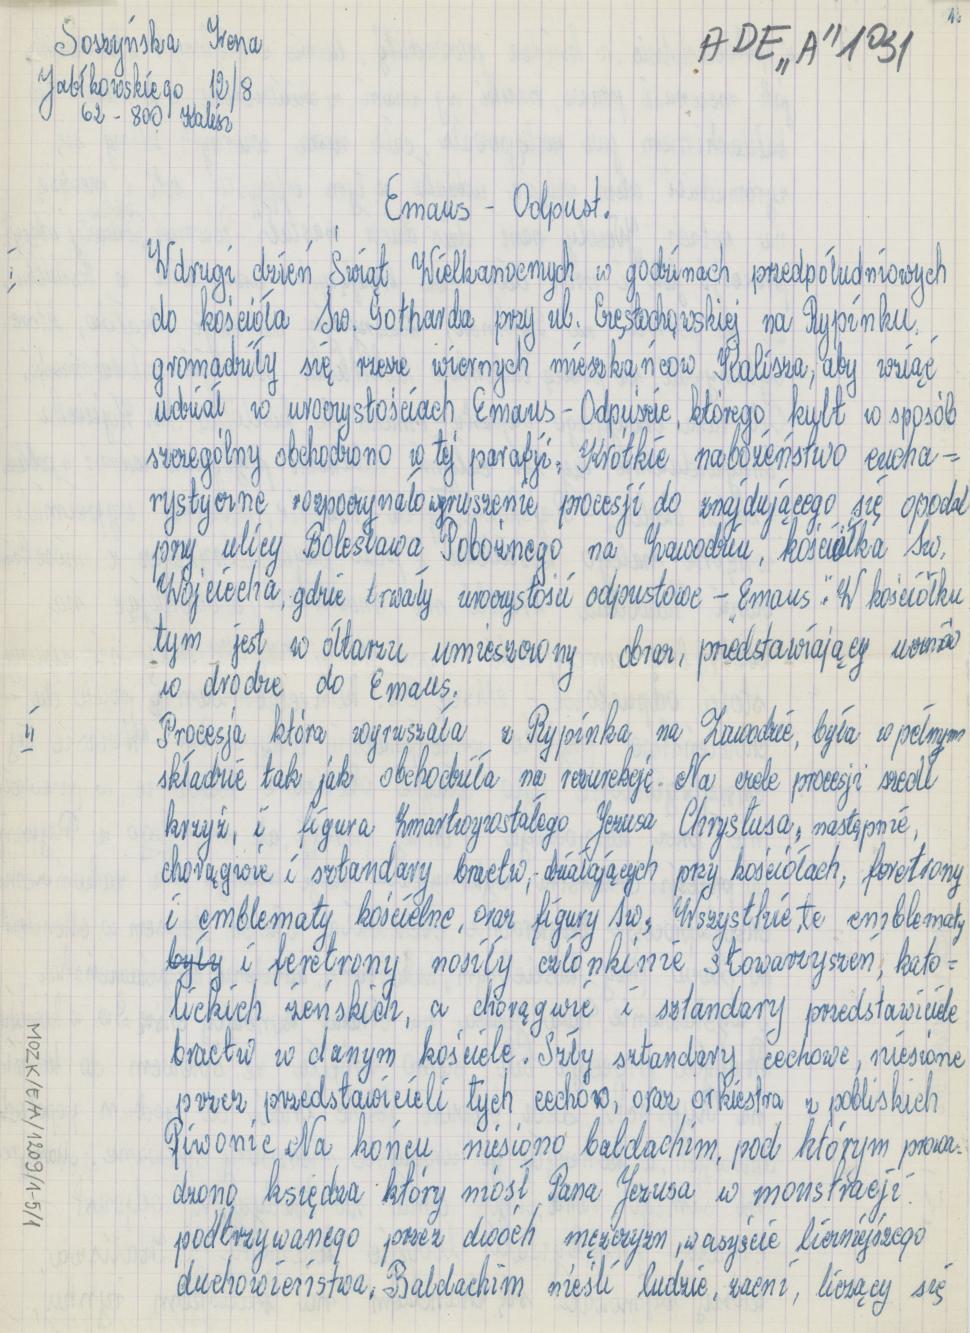 1.
Soszyńska Irena
Jabłkowskiego 12/8
62-800 Kalisz
ADE „A" 1031
Emaus - Odpust.
W drugi dzień Świąt Wielkanocnych w godzinach przedpołudniowych
do kościoła Św. Gotharda przy ul. Częstochowskiej na Rypinku,
gromadziły się rzesze wiernych mieszkańców Kalisza, aby wziąć
udział w uroczystościach Emaus - Odpuście, którego kult w sposób
szczególny obchodzono w tej parafji. Krótkie nabożeństwo eucha=
rystyczne rozpoczynało wyruszenie procesji do znajdującego się opodal
przy ulicy Bolesława Pobożnego na Zawodziu, kościółka Św.
Wojciecha, gdzie trwały uroczystości odpustowe - „Emaus". W kościółku
tym jest w ołtarzu umieszczony obraz, przedstawiający uczniów
w drodze do Emaus.
Procesja która wyruszała z Rypinka na Zawodzie, była w pełnym
składzie tak jak obchodziła na rezurekcję. Na czele procesji szedł
krzyż, i figura Zmartwychwstałego Jezusa Chrystusa, następnie,
chorągwie i sztandary bractw, działających przy kościołach, feretrony
i emblematy kościelne, oraz figury św. Wszystkie te emblematy
były i feretrony nosiły członkinie stowarzyszeń, kato=
lickich żeńskich, a chorągwie i sztandary przedstawiciele
bractw w danym kościele. Szły sztandary cechowe, niesione
przez przedstawicieli tych cechów, oraz orkiestra z pobliskich
Piwonic. Na końcu niesiono baldachim, pod którym prowa=
dzono księdza który niósł Pana Jezusa w monstracji
podtrzywanego przez dwóch mężczyzn, w asyście liczniejszego
duchowieństwa. Baldachim nieśli ludzie, zacni, liczący się
MOZK/E/A/1209/1-5/1